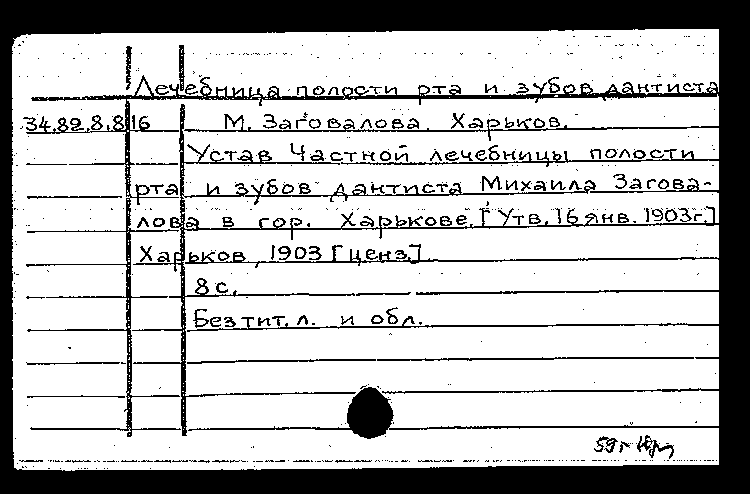 Лечебница полости рта и зубов дантиста
34.82.8.816 М. Заговалова. Харьков.
Устав Частной лечебницы полости
рта и зубов дантиста Михаила Загова-
лова в гор. Харькове. [Утв. 16 янв. 1903г.]
Харьков, 1903 [ценз.]
8 с.
Без тит. л. и обл.
59г